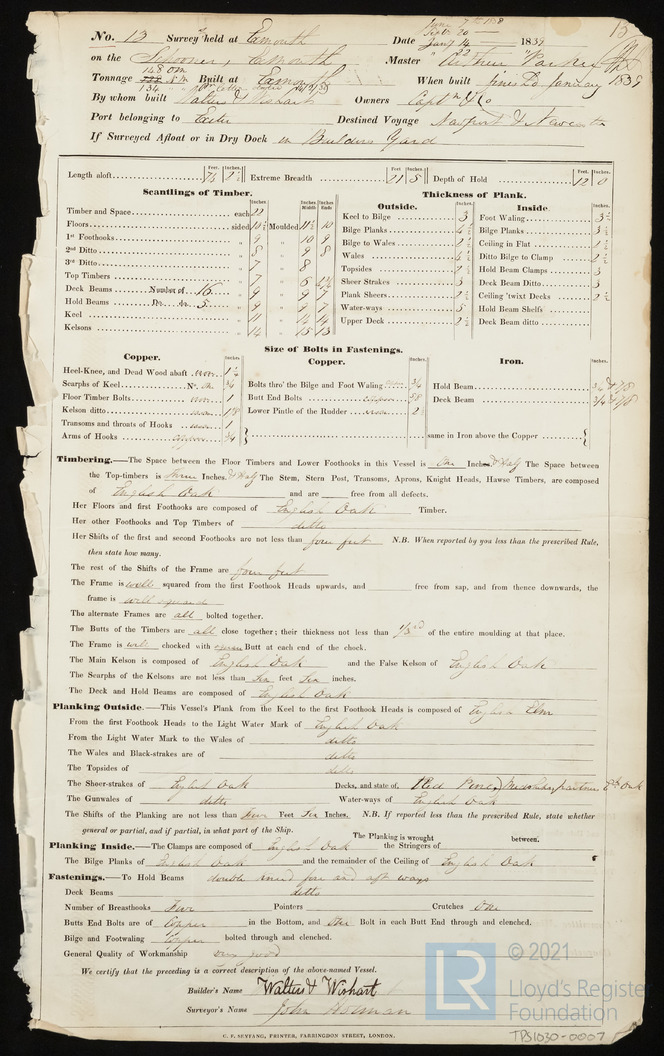 June 7th 1838
Sept 20
13
No. 13 Survey held at Exmouth Date Jany 14 1839
on the Schooner, Exmouth Master Arthur Parker
Tonnage 148 O.M. Built at Exmouth When built finis'd January 1839
134
By whom built Walters & Wishart Owners Captn & Co
Port belonging to Exeter Destined Voyage Newport &
If Surveyed Afloat or in Dry Dock in Builders Yard
Length aloft Feet. 75 Inches. Extreme Breadth Feet. 21 Inches. 5 Depth of Hold Feet. 12 Inches. 0
Scantlings of Timber.
Timber and Space each 22
Floors sided 10½ Moulded 11½ 10
1st Foothooks 9 10 9
2nd Ditto 8 9 8
3rd Ditto 7 8
Top Timbers 7 6
Deck Beams Number of 16 9 9 7
Hold Beams Do. do. 5 9 9 7
Keel 11 14 14
Kelsons 14 15 13
Thickness of Plank.
Outside.
Keel to Bilge 3
Bilge Planks
Bilge to Wales 2½
Wales
Topsides 2½
Sheer Strakes 3
Plank Sheers 2½
Water-ways 5
Upper Deck 2½
Inside.
Foot Waling 3½
Bilge Planks 3½
Ceiling in Flat
Ditto Bilge to Clamp 2½
Hold Beam Clamps 3
Deck Beam Ditto 3
Ceiling 'twixt Decks 2½
Hold Beam Shelfs
Deck Beam ditto
Size of Bolts in Fastenings.
Copper.
Heel-Knee, and Dead Wood abaft iron
Scarphs of Keel No. ¾
Floor Timber Bolts iron 1
Kelson ditto iron 1/8
Transoms and throats of Hooks iron 1
Arms of Hooks copper ¾
Copper.
Bolts thro' the Bilge and Foot Waling iron ¾
Butt End Bolts copper 5/8
Lower Pintle of the Rudder iron
Iron.
Hold Beam ¾ & 7/8
Deck Beam ¾ & 7/8
same in Iron above the Copper
Timbering.—The Space between the Floor Timbers and Lower Foothooks in this Vessel is One Inch & Half The Space between
the Top-timbers is Three Inches. & Half The Stem, Stern Post, Transoms, Aprons, Knight Heads, Hawse Timbers, are composed
of English Oak and are free from all defects.
Her Floors and first Foothooks are composed of English Oak Timber.
Her other Foothooks and Top Timbers of ditto
Her Shifts of the first and second Foothooks are not less than four feet N.B. When reported by you less than the prescribed Rule,
then state how many.
The rest of the Shifts of the Frame are four feet
The Frame is well squared from the first Foothook Heads upwards, and free from sap, and from thence downwards, the
frame is well squared
The alternate Frames are all bolted together.
The Butts of the Timbers are all close together; their thickness not less than 1/3rd of the entire moulding at that place.
The Frame is well chocked with Butt at each end of the chock.
The Main Kelson is composed of English Oak and the False Kelson of English Oak
The Scarphs of the Kelsons are not less than feet Six inches.
The Deck and Hold Beams are composed of English Oak
Planking Outside.—This Vessel's Plank from the Keel to the first Foothook Heads is composed of English Elm
From the first Foothook Heads to the Light Water Mark of English Oak
From the Light Water Mark to the Wales of ditto
The Wales and Black-strakes are of ditto
The Topsides of ditto
The Sheer-strakes of English Oak Decks, and state of, Red Pine, Midships partners Eh Oak
The Gunwales of ditto Water-ways of English Oak
The Shifts of the Planking are not less than Four Feet Six Inches. N.B. If reported less than the prescribed Rule, state whether
general or partial, and if partial, in what part of the Ship. The Planking is wrought between.
Planking Inside.—The Clamps are composed of English Oak the Stringers of
The Bilge Planks of English Oak and the remainder of the Ceiling of English Oak
Fastenings.—To Hold Beams double kneed fore and aft ways
Deck Beams ditto
Number of Breasthooks Four Pointers Crutches One
Butts End Bolts are of Copper in the Bottom, and One Bolt in each Butt End through and clenched.
Bilge and Footwaling Copper bolted through and clenched.
General Quality of Workmanship very good
We certify that the preceding is a correct description of the above-named Vessel.
Builder's Name Walters & Wishart
Surveyor's Name John Norman
C. F. SEYFANG, PRINTER, FARRINGDON STREET, LONDON.
LR
© 2021
Lloyd's Register
Foundation
TPS1030-0007